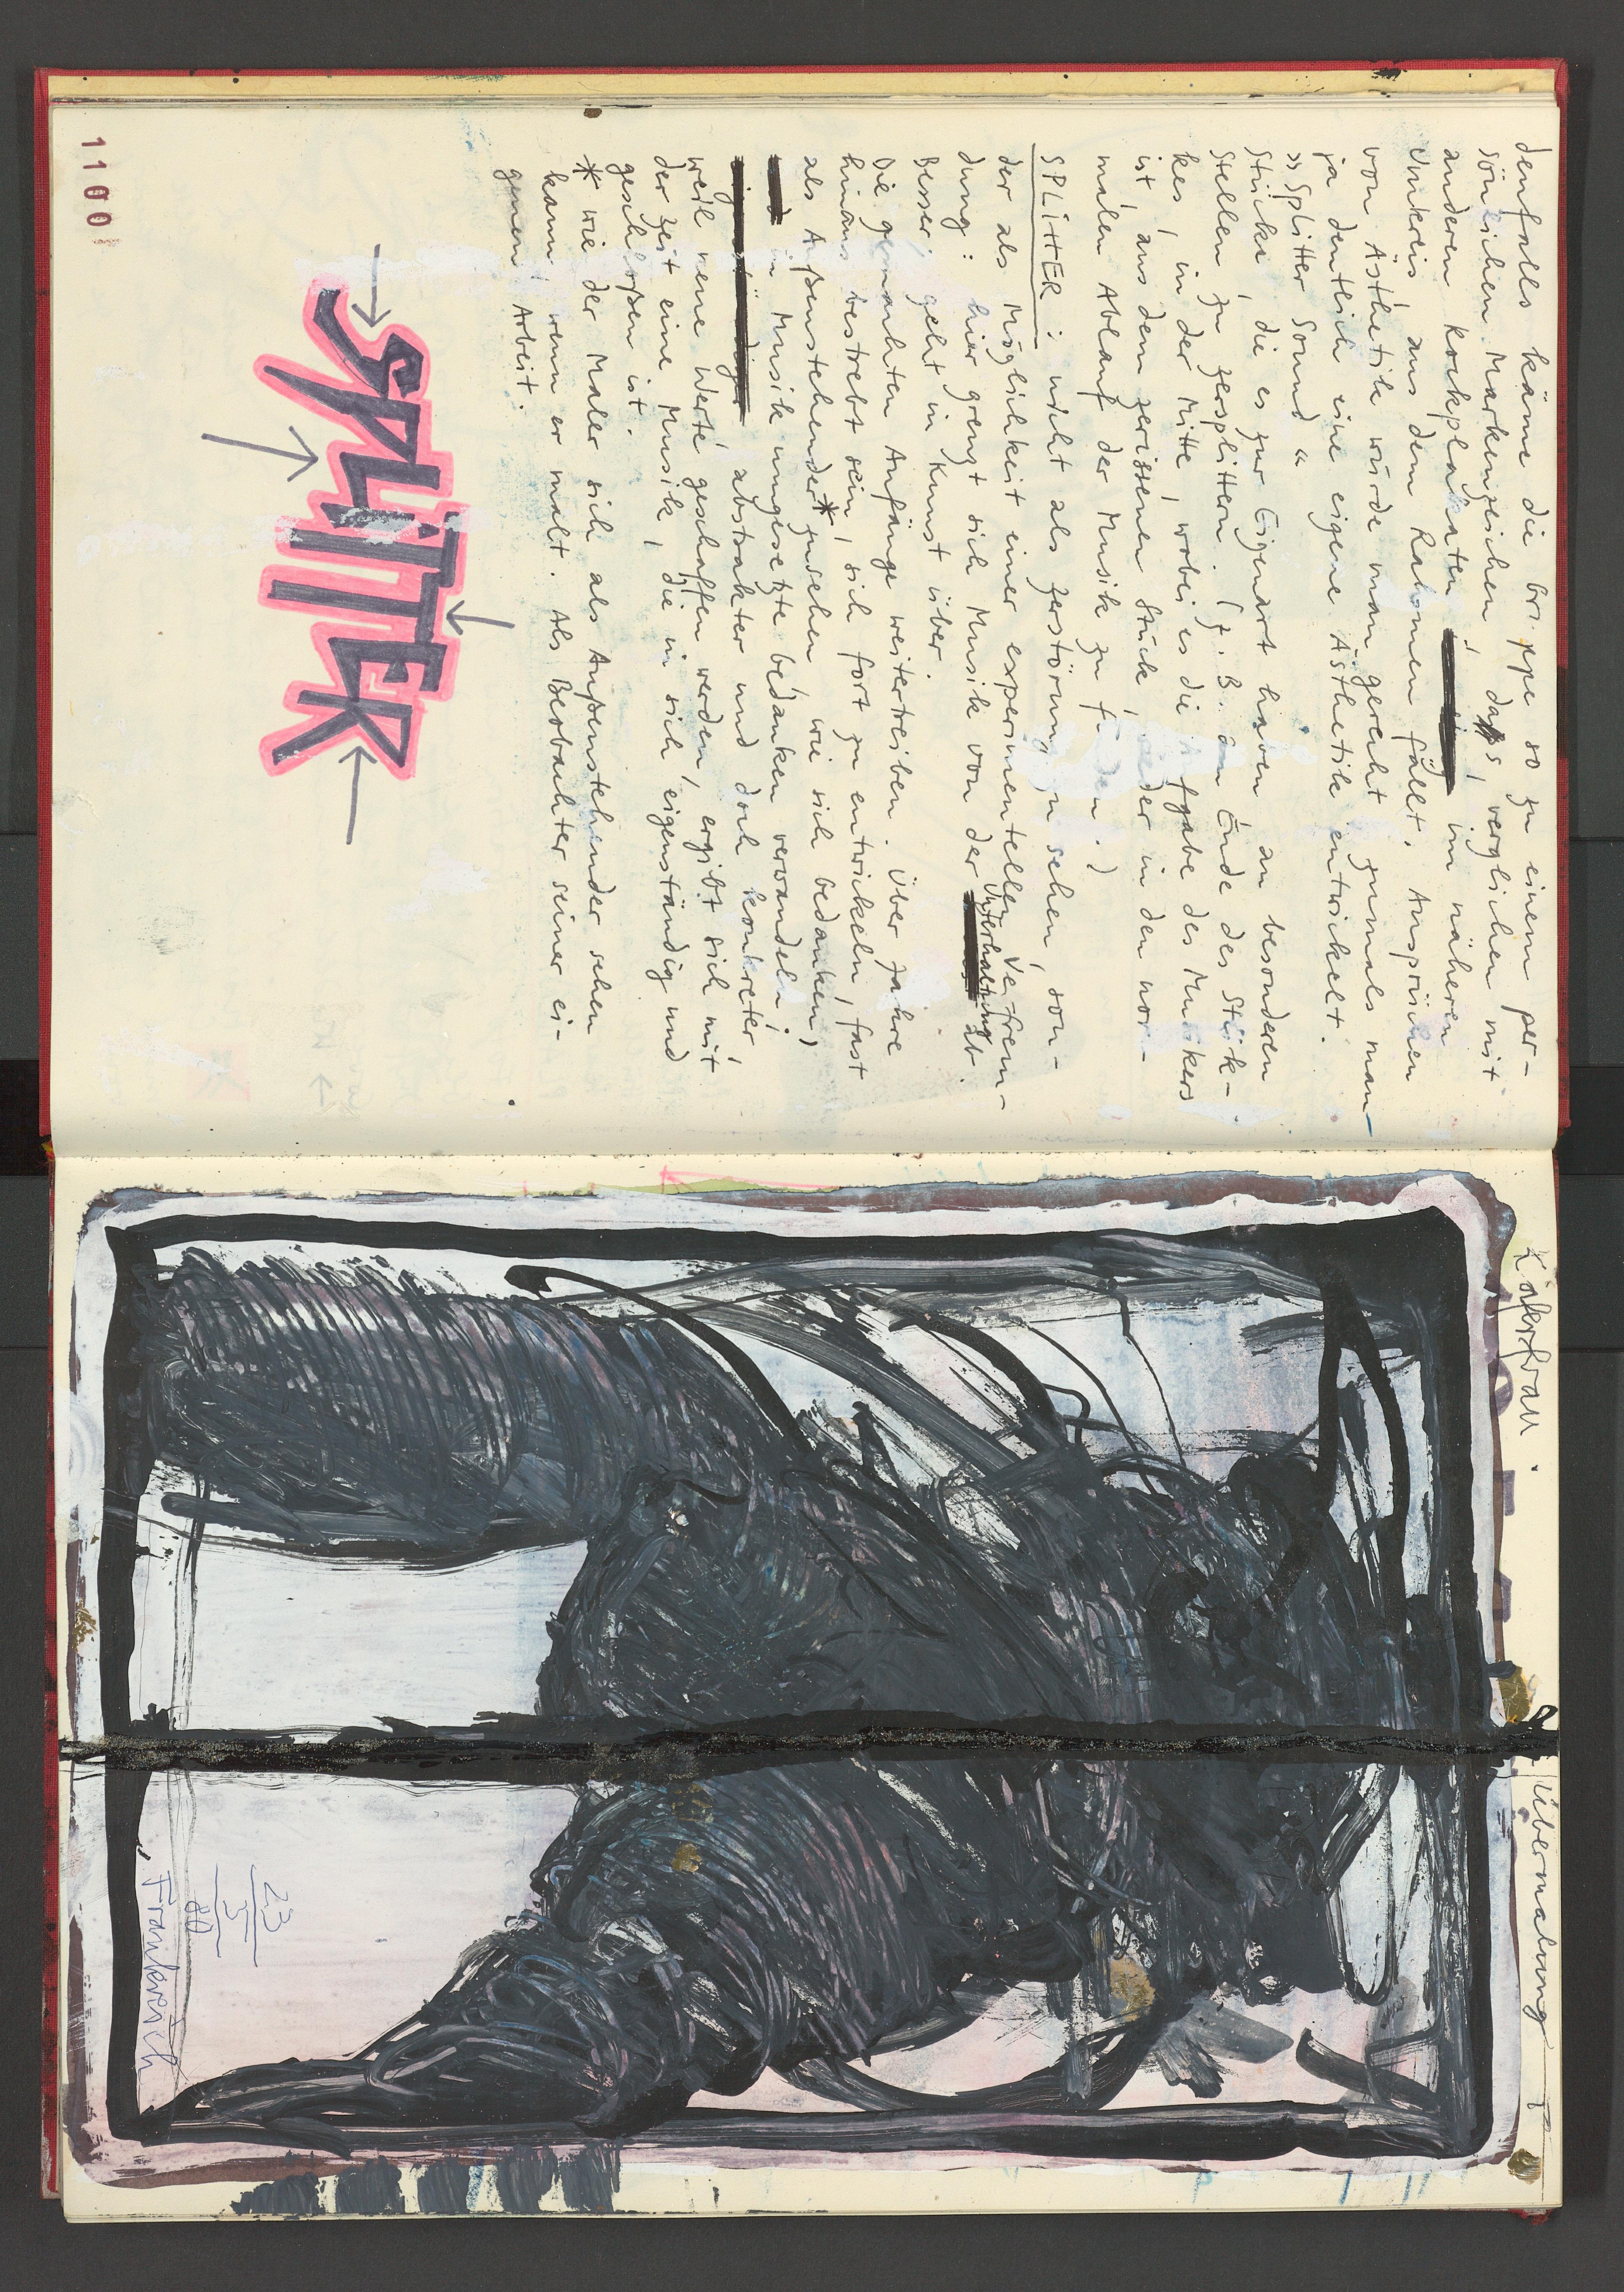 denfalls käme die Gruppe so zu einem per-
sönlichen Markenzeichen, daß, verglichen mit
anderen Rockplakaten im näheren
Umkreis, aus dem Rahmen fällt. Ansprüchen
von Ästhetik würde man gerecht, zumals man
ja deutlich eine eigene Ästhetik entwickelt.
»Splitter Sound«
Stücke, die es zur Eigenart haben an besonderen
Stellen zu zersplittern. (z. B. am Ende des Stük-
kes, in der Mitte, wobei es die Aufgabe des Musikers
ist, aus dem zerissenen Stück, wieder in den nor-
malen Ablauf der Musik zu finden.)
SPLITTER: nicht als Zerstörung zu sehen, son-
der als Möglichkeit einer experimentellen Verfrem-
dung: hier grenzt sich Musik von der Unterhaltung ab.
Besser: geht in Kunst über.
Die gemachten Anfänge weitertreiben. Über Jahre
hinaus bestrebt sein, sich fort zu entwickeln, fast
als Außenstehender* zusehen wie sich Gedanken,
in Musik umgesetzte Gedanken verwandeln;
abstrakter und doch konkreter,
weil neue Werte geschaffen werden, ergibt sich mit
der Zeit eine Musik, die in sich eigenständig und
geschloßen ist.
* wie der Maler sich als Außenstehender sehen
kann, wenn er malt. Als Beobachter seiner ei-
genen Arbeit.
SPLITTER
1100
Käferfrau.
Übermalung
23
5
80
Frankreich